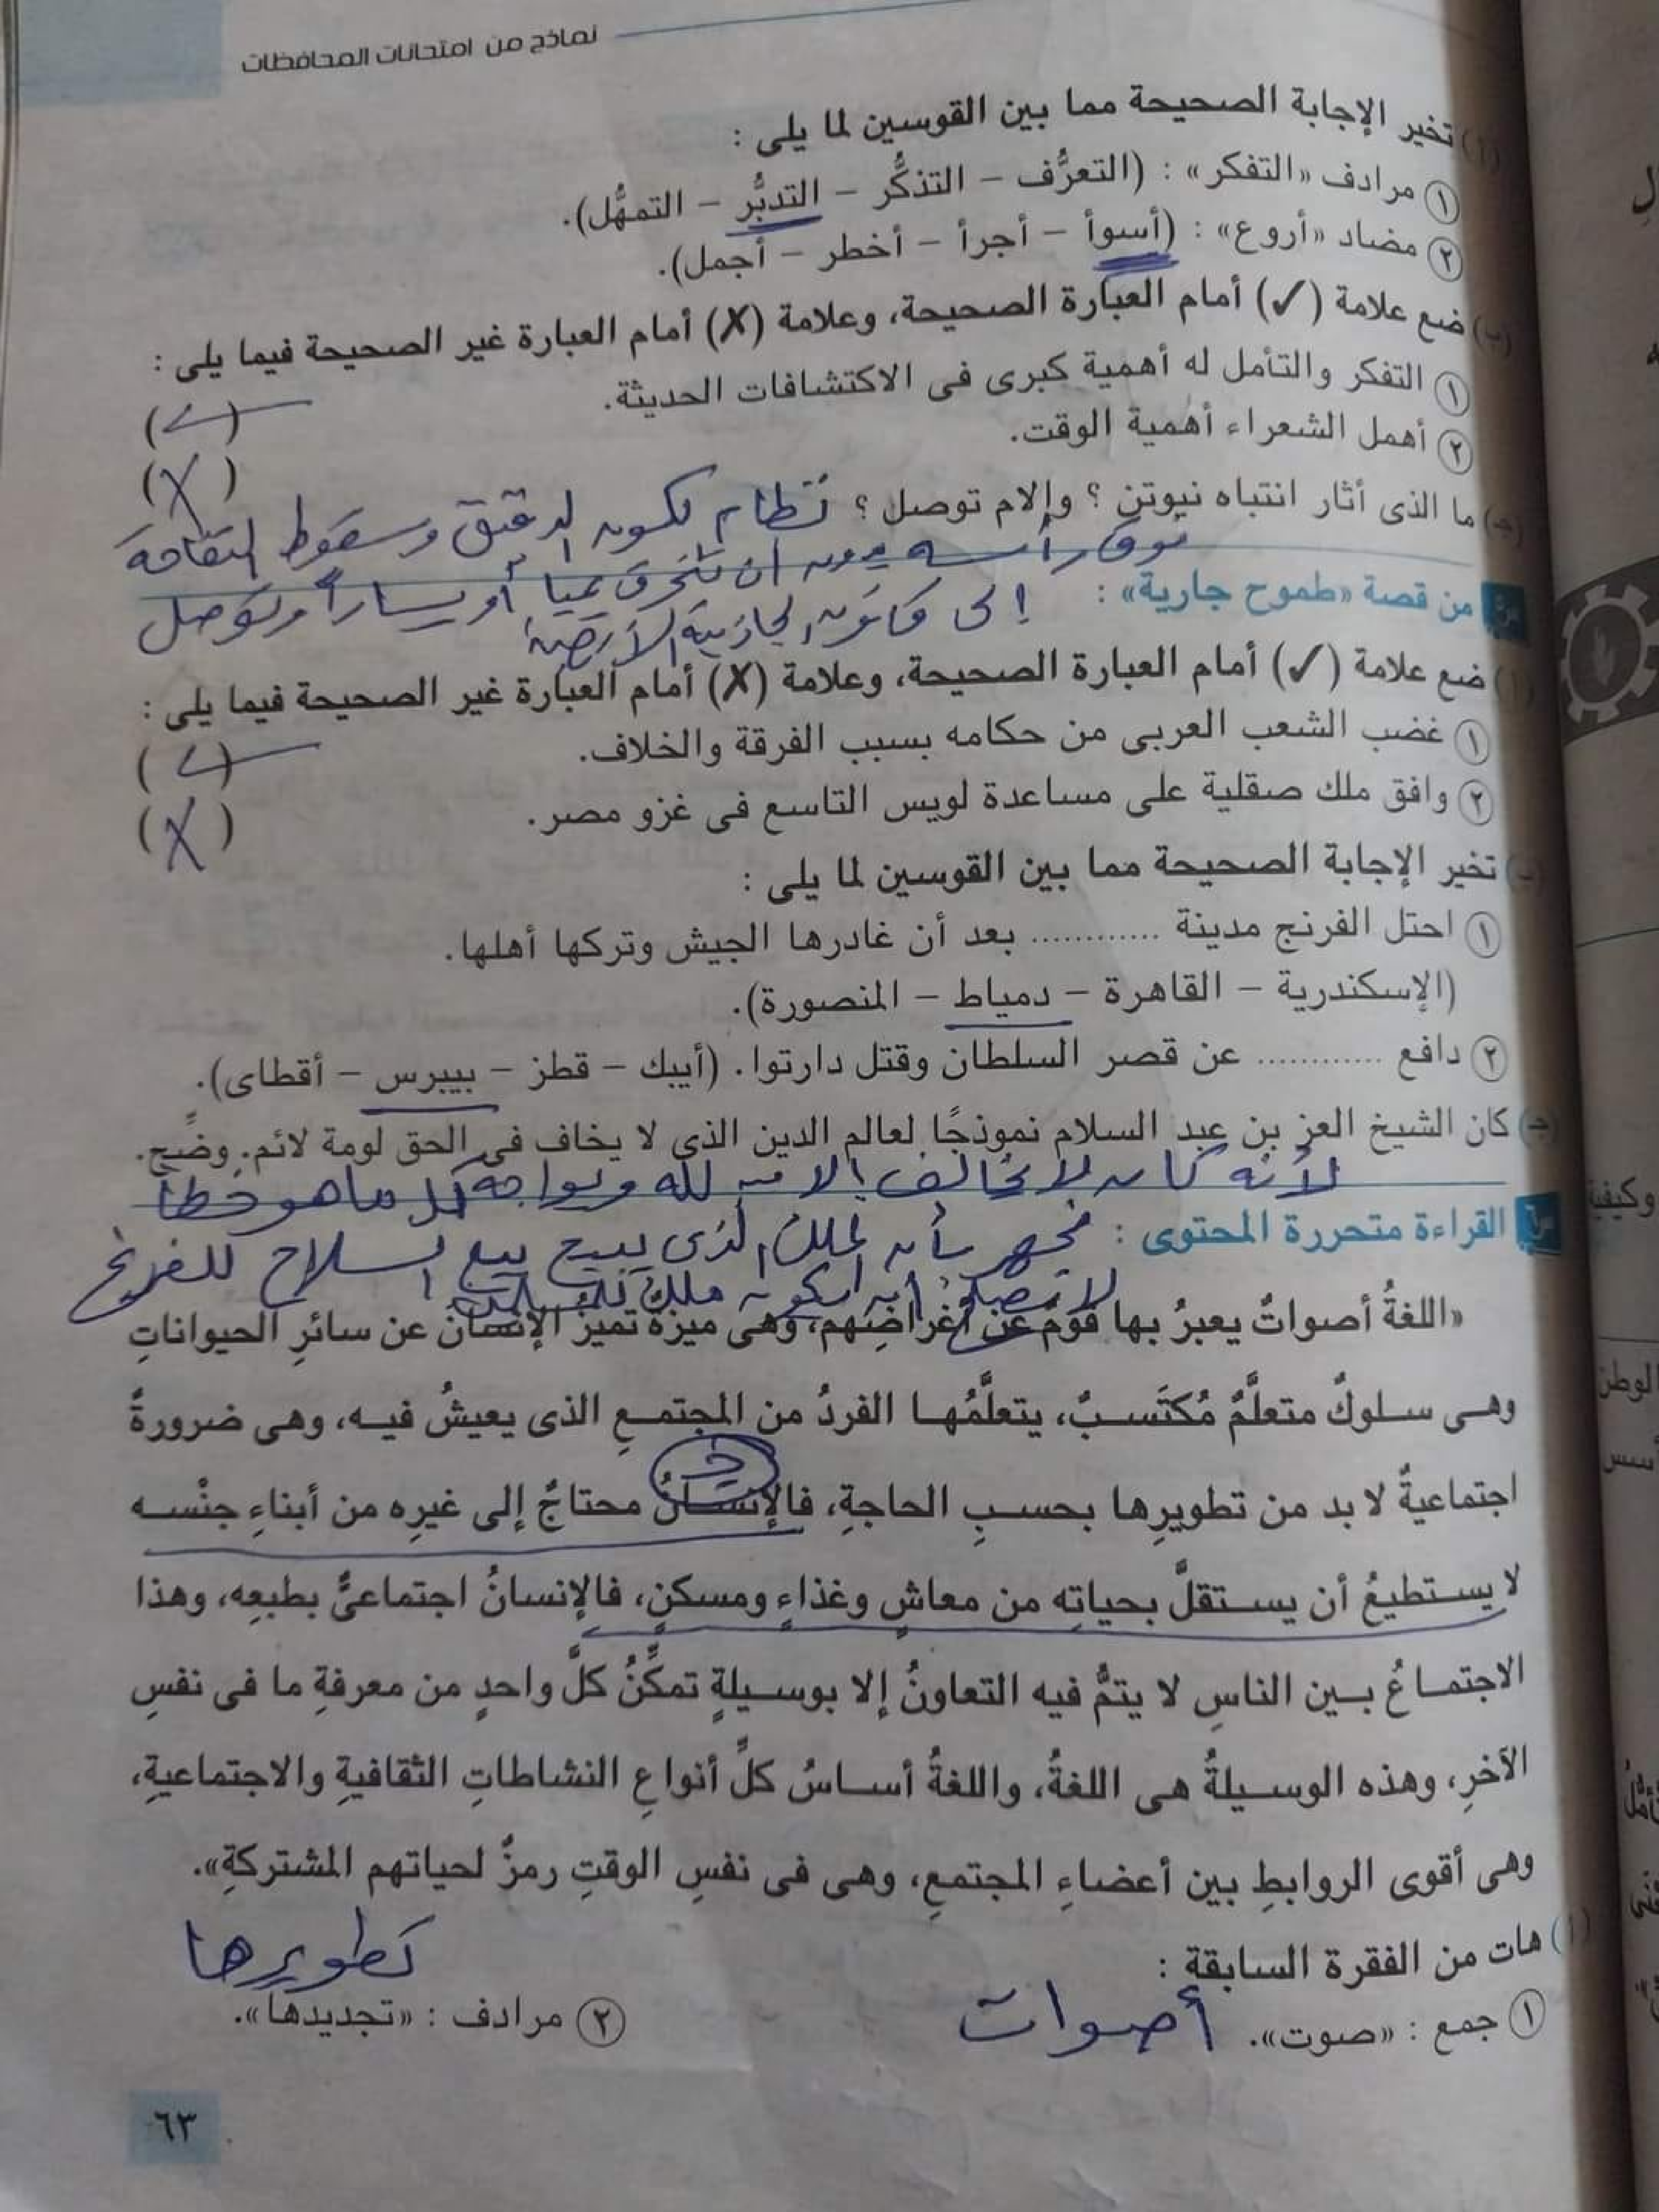 نماذج من امتحانات المحافظات
(أ) تخير الإجابة الصحيحة مما بين القوسين لما يلى :
١ مرادف «التفكر» : (التعرُّف – التذكُّر – التدبُّر – التمهُّل).
٢ مضاد «أروع» : (أسوأ – أجرأ – أخطر – أجمل).
(ب) ضع علامة (✓) أمام العبارة الصحيحة، وعلامة (✗) أمام العبارة غير الصحيحة فيما يلى :
١ التفكر والتأمل له أهمية كبرى فى الاكتشافات الحديثة. (✓)
٢ أهمل الشعراء أهمية الوقت. (✗)
(جـ) ما الذى أثار انتباه نيوتن ؟ وإلام توصل ؟ نظام الكون الدقيق وسقوط التفاحة
فوق رأسه دون أن تنحرف يمينا أو يسارا وتوصل
من قصة «طموح جارية» : إلى قانون الجاذبية الأرضية
(أ) ضع علامة (✓) أمام العبارة الصحيحة، وعلامة (✗) أمام العبارة غير الصحيحة فيما يلى :
١ غضب الشعب العربى من حكامه بسبب الفرقة والخلاف. (✓)
٢ وافق ملك صقلية على مساعدة لويس التاسع فى غزو مصر. (✗)
(ب) تخير الإجابة الصحيحة مما بين القوسين لما يلى :
١ احتل الفرنج مدينة ............ بعد أن غادرها الجيش وتركها أهلها.
(الإسكندرية – القاهرة – دمياط – المنصورة).
٢ دافع ............ عن قصر السلطان وقتل دارتوا. (أيبك – قطز – بيبرس – أقطاى).
(جـ) كان الشيخ العز بن عبد السلام نموذجًا لعالم الدين الذى لا يخاف فى الحق لومة لائم. وضِّح.
لأنه كان لا يخاف إلا من الله ويواجه كل ما هو خطأ
القراءة متحررة المحتوى : فجهر بأن الملك الذى يبيح بيع السلاح للفرنج
لا يصلح أن يكون ملك
«اللغةُ أصواتٌ يعبرُ بها قومٌ عن أغراضِهم، وهى ميزةٌ تميزُ الإنسانَ عن سائرِ الحيواناتِ
وهى سلوكٌ متعلَّمٌ مُكتَسبٌ، يتعلَّمُها الفردُ من المجتمعِ الذى يعيشُ فيه، وهى ضرورةٌ
اجتماعيةٌ لا بد من تطويرِها بحسبِ الحاجةِ، فالإنسانُ محتاجٌ إلى غيرِه من أبناءِ جنْسه
لا يستطيعُ أن يستقلَّ بحياتِه من معاشٍ وغذاءٍ ومسكنٍ، فالإنسانُ اجتماعىٌّ بطبعِه، وهذا
الاجتماعُ بين الناسِ لا يتمُّ فيه التعاونُ إلا بوسيلةٍ تمكِّنُ كلَّ واحدٍ من معرفةِ ما فى نفسِ
الآخرِ، وهذه الوسيلةُ هى اللغةُ، واللغةُ أساسُ كلِّ أنواعِ النشاطاتِ الثقافيةِ والاجتماعيةِ،
وهى أقوى الروابطِ بين أعضاءِ المجتمعِ، وهى فى نفسِ الوقتِ رمزٌ لحياتهم المشتركةِ».
(أ) هات من الفقرة السابقة :
تطويرها
١ جمع : «صوت». أصوات ٢ مرادف : «تجديدها».
٦٣
وكيفية
الوطن